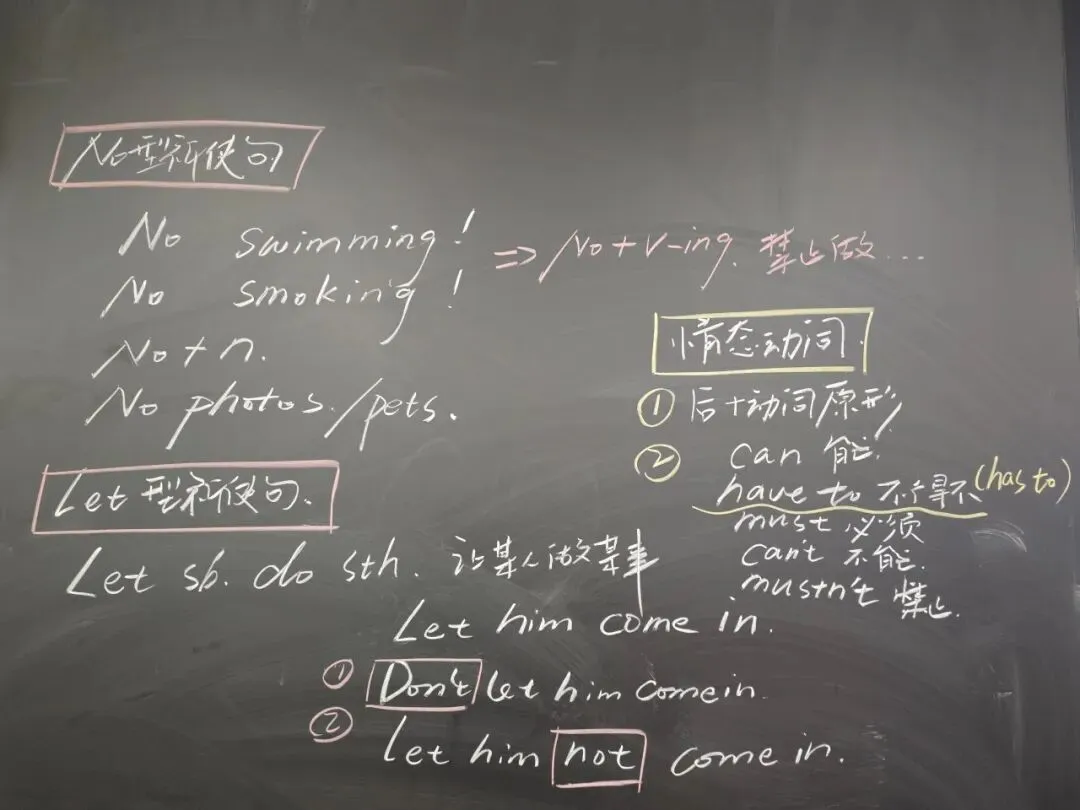 No型祈使句
No swimming!
No smoking!
⇒ No+V-ing. 禁止做...
No + n.
No photos./pets.
Let型祈使句.
Let sb. do sth. 让某人做某事
Let him come in.
① Don't let him come in.
② Let him not come in.
情态动词.
① 后+动词原形
② can 能.
have to 不得不 (has to)
must 必须
can't 不能.
mustn't 禁止.